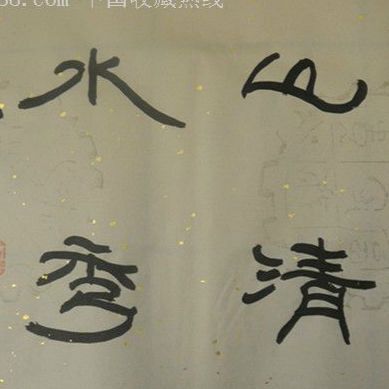 山清
水秀
88.com 中国收藏热线